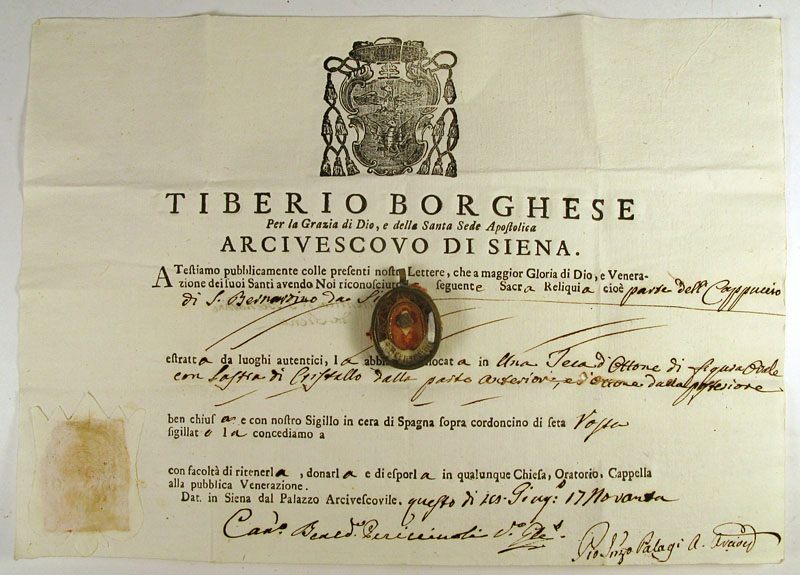 TIBERIO BORGHESE
Per la Grazia di Dio, e della Santa Sede Apostolica
ARCIVESCOVO DI SIENA.
ATtestiamo pubblicamente colle presenti nostre Lettere, che a maggior Gloria di Dio, e Venera-
zione dei suoi Santi avendo Noi riconosciut seguente Sacra Reliquia cioè parte dell' Cappuccio
di S. Bernardino da Si
estratta da luoghi autentici, la abbi ocata in Una Teca d'Ottone di figura Ovale
con Lastra di Cristallo dalla parte anteriore, e d'ottone dalla posteriore
ben chiusa e con nostro Sigillo in cera di Spagna sopra cordoncino di seta Rossa
sigillat la concediamo a
con facoltà di ritenerla, donarla e di esporla in qualunque Chiesa, Oratorio, Cappella
alla pubblica Venerazione.
Dat. in Siena dal Palazzo Arcivescovile. questo dì Giug.º 17Novanta
Can.º Bened.º
Palagi